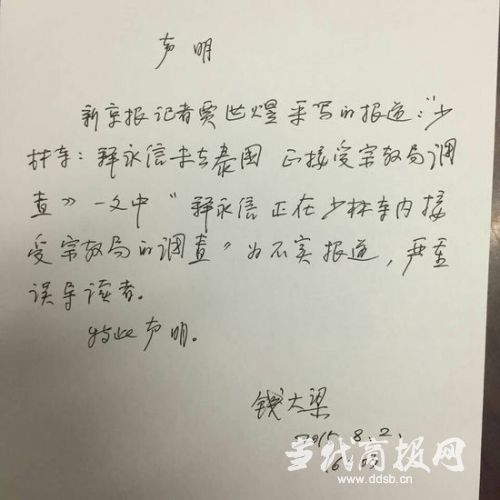 声明
新京报记者贾世煜采写的报道:《少
林寺：释永信未去泰国 正接受宗教局调
查》一文中“释永信正在少林寺内接
受宗教局的调查”为不实报道，严重
误导读者。
特此声明。
钱大梁
2015.8.2.
当代商报网
www.ddsb.cn